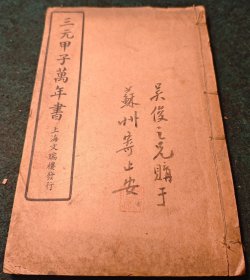 三元甲子萬年書
上海文瑞樓發行
吴俊之兄購于
蘇州寄止安